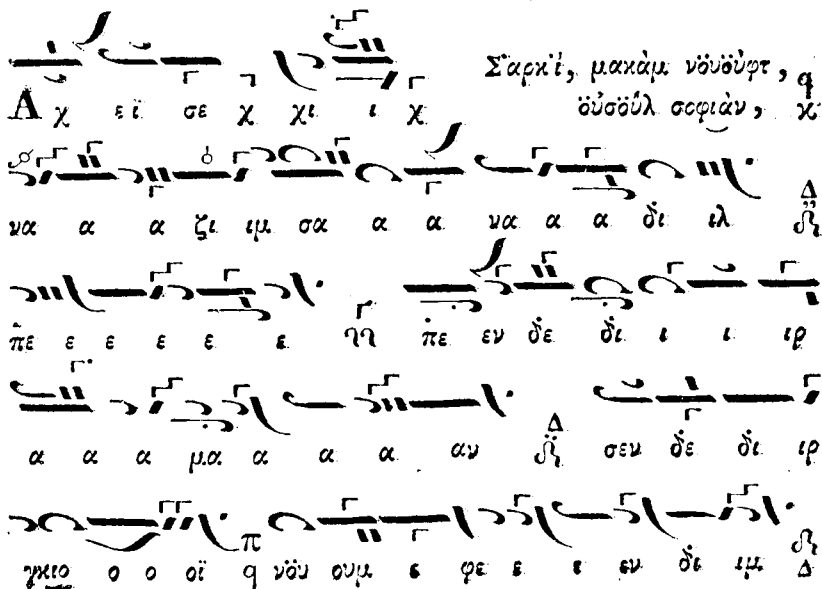 Σ̇αρκὶ, μακὰμ νὄυὄὺφτ,
ὄὐσὄὺλ σοφιὰν,
Α χ ει σε χ χι ι χ
να α α ζι ιμ σα α α να α α δ̇ι ιλ
π̇ε ε ε ε ε ε π̇ε εν δ̇ε δ̇ι ι ι ιρ
α α α μα α α α αν σεν δ̇ε δ̇ι ιρ
γκιο ο ο οϊ νὄυ ουμ ε φε ε ι εν δ̇ι ιμ